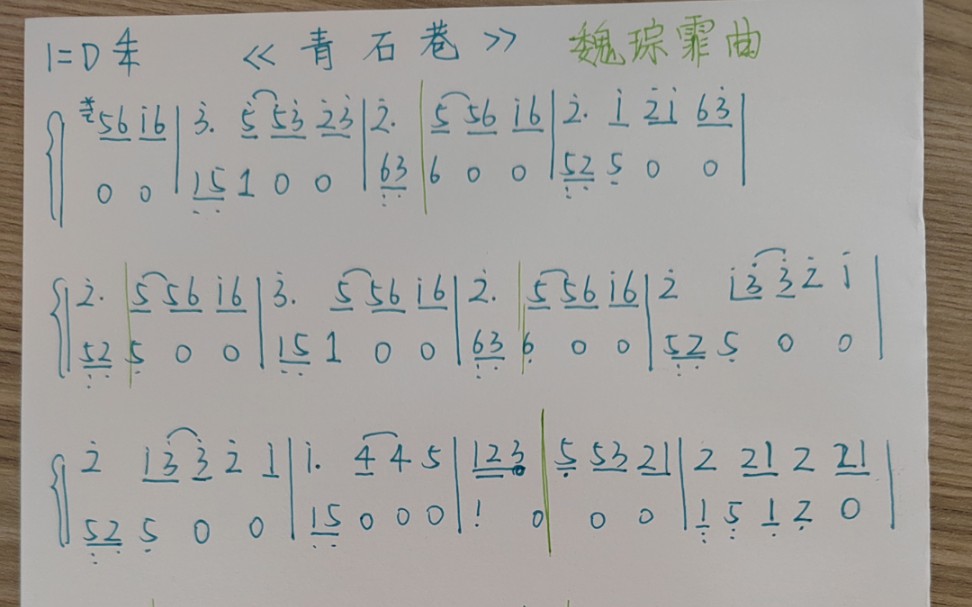 1=D 4/4 《青石巷》 魏琮霏曲
5 6 i 6 | 3̇. 5̇ 5̇ 3̇ 2̇ 3̇ | 2̇. 5 5 6 i 6 | 2̇. i 2̇ i 6 3̇ |
0 0 | 1 5 1 0 0 | 6 3 6 0 0 | 5 2 5 0 0 |
2̇. 5 5 6 i 6 | 3̇. 5 5 6 i 6 | 2̇. 5 5 6 i 6 | 2̇ i 3̇ 3̇ 2̇ i |
5 2 5 0 0 | 1 5 1 0 0 | 6 3 6 0 0 | 5 2 5 0 0 |
2̇ 1 3̇ 3̇ 2̇ 1 | i. 4 4 5 | 1 2 3 5 5 3 2 1 | 2 2 1 2 2 1 |
5 2 5 0 0 | 1 5 0 0 0 | 0 0 0 | 1 5 1 2 0 |